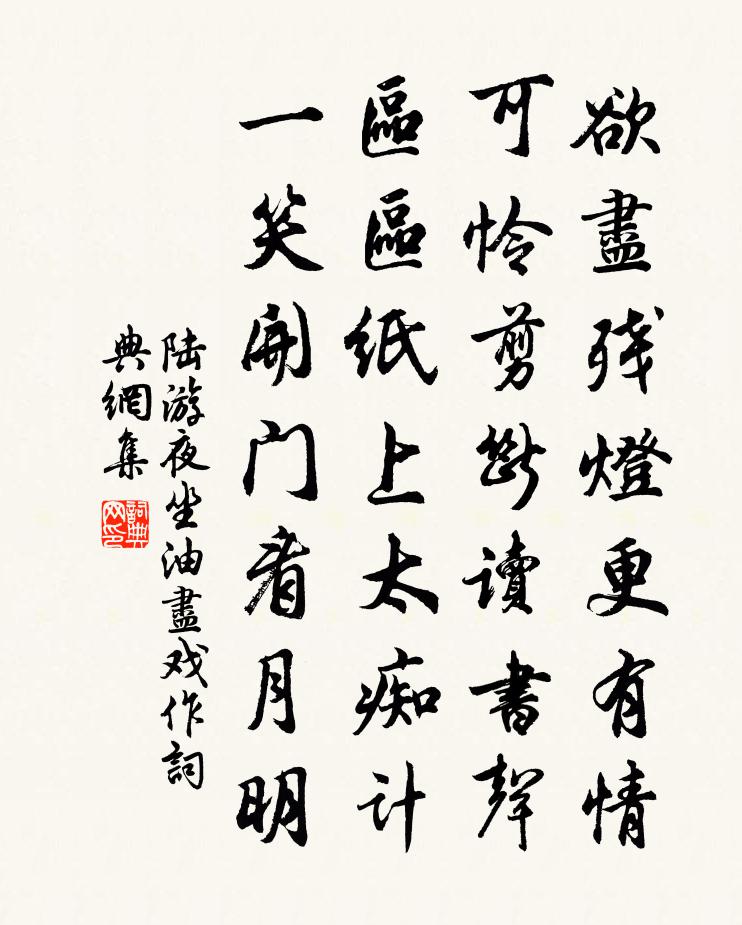 欲盡残燈更有情
可怜剪斷讀書聲
區區紙上太痴计
一笑開门看月明
陆游夜坐油盡戏作詞
典網集
詞典
网印